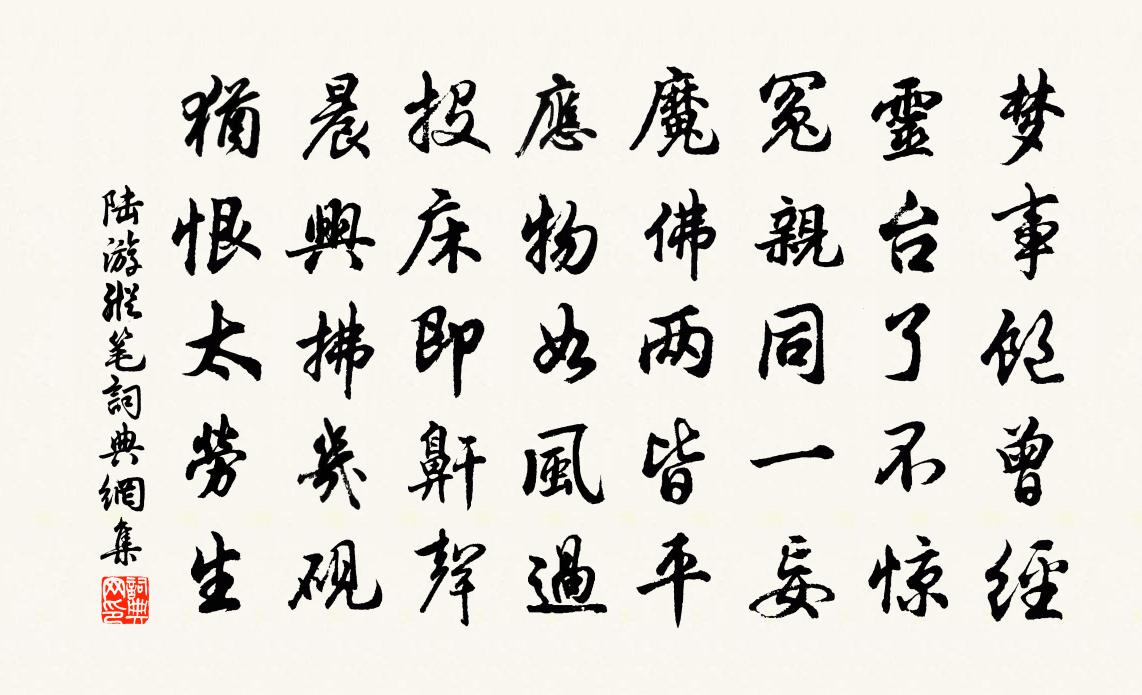 梦事饱曾經
靈台了不惊
冤親同一妄
魔佛两皆平
應物如風過
投床即鼾聲
晨興拂几硯
猶恨太勞生
陆游縱笔詞典網集
詞典网印